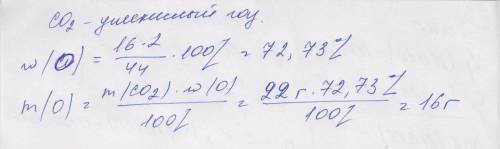 CO₂ - углекислый газ.
w(O) = 16·2/44 · 100% = 72,73%
m(O) = m(CO₂)·w(O)/100% = 22г·72,73%/100% = 16г